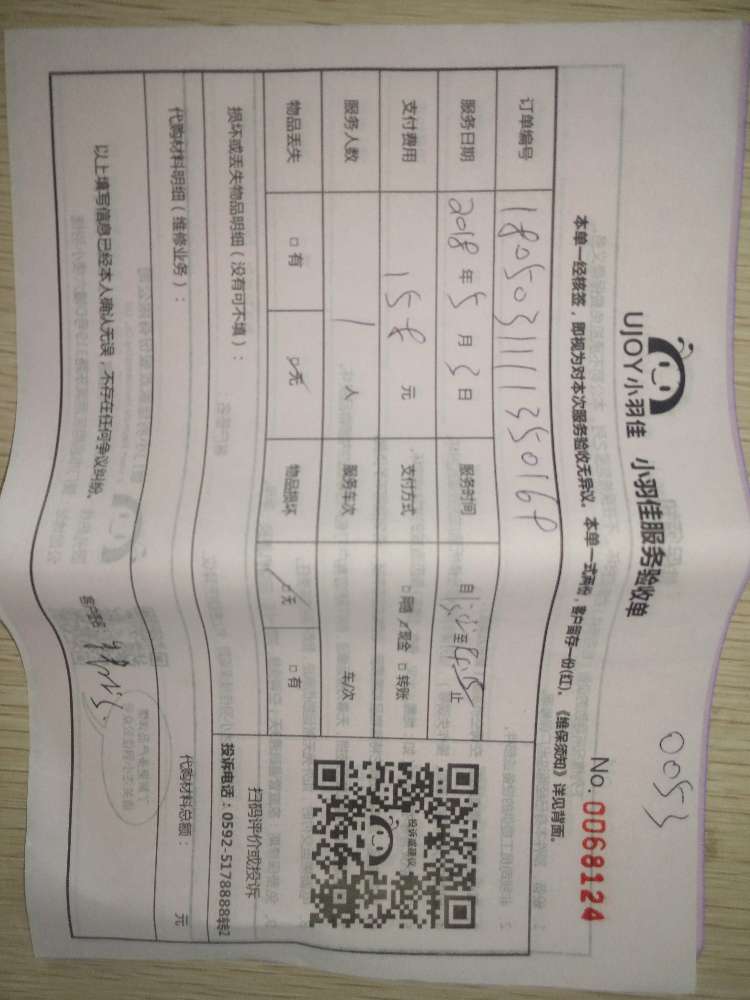 0053
UJOY小羽佳 小羽佳服务验收单
No. 0068124
本单一经核签，即视为对本次服务验收无异议。本单一式两份，客户留存一份(红)。《维保须知》详见背面。
订单编号 180503111135016
服务日期 2018年5月3日 服务时间 自 至 止
支付费用 158 元 支付方式 □ □现金 □转账
服务人数 1 人 服务车次 车/次
物品丢失 □有 □无 物品损坏 □无 □有
投诉或建议
扫码评价或投诉
投诉电话：0592-5178888转2
损坏或丢失物品明细（没有可不填）：
代购材料明细（维修业务）： 代购材料总额： 元
以上填写信息已经本人确认无误，不存在任何争议纠纷。 客户签名：